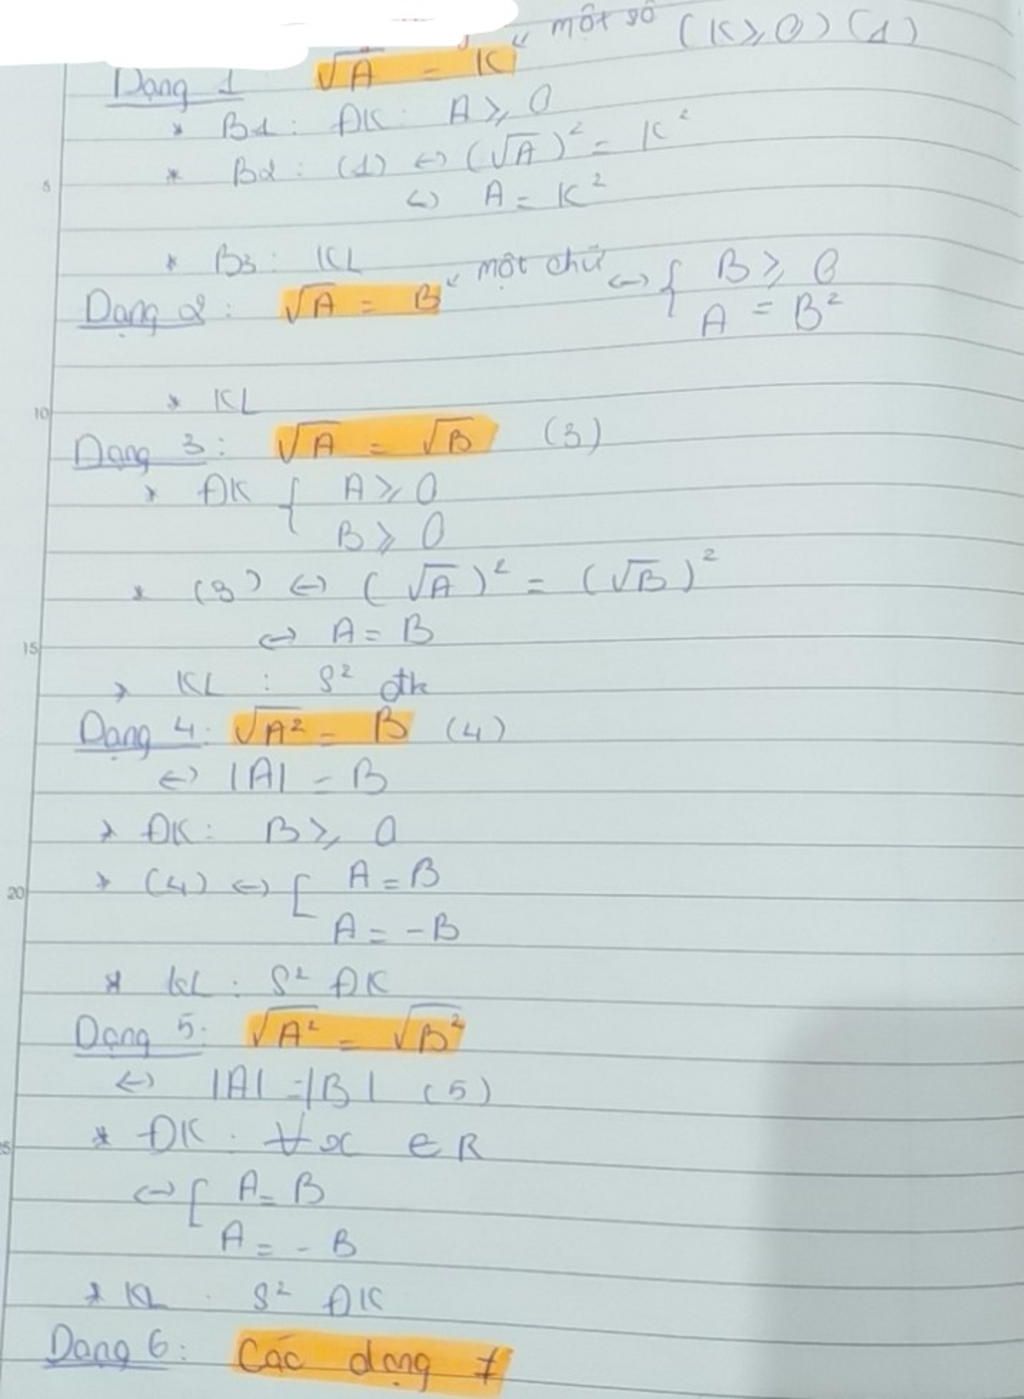 Dạng 1 √A = K " một số (K ≥ 0) (1)
* B1: ĐK: A ≥ 0
* B2: (1) ⇔ (√A)² = K²
⇔ A = K²
* B3: KL
Dạng 2: √A = B " một chữ ⇔ { B ≥ 0
A = B²
* KL
Dạng 3: √A = √B (3)
* ĐK { A ≥ 0
B ≥ 0
* (3) ⇔ (√A)² = (√B)²
⇔ A = B
* KL : S² đk
Dạng 4: √A² = B (4)
⇔ |A| = B
* ĐK: B ≥ 0
* (4) ⇔ [ A = B
A = -B
* KL: S² ĐK
Dạng 5: √A² = √B²
⇔ |A| = |B| (5)
* ĐK: ∀x ∈ R
⇔ [ A = B
A = - B
* KL : S² ĐK
Dạng 6: Các dạng ≠
5
10
15
20